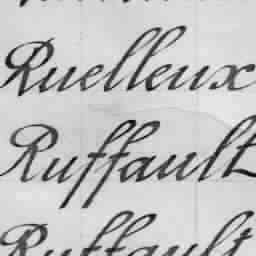 Ruelleux
Ruffault
Ruffault